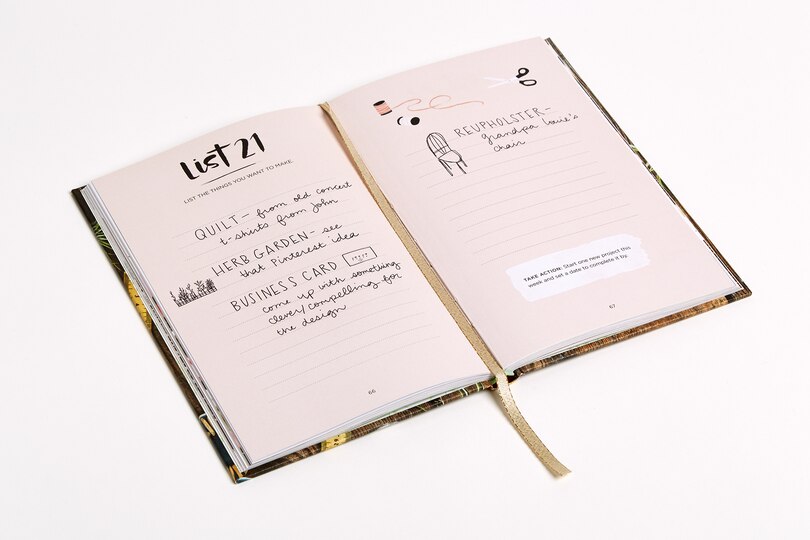 List 21
LIST THE THINGS YOU WANT TO MAKE.
QUILT- from old concert
t-shirts from John
HERB GARDEN- see
that Pinterest idea
BUSINESS CARD
come up with something
clever/compelling for
the design
66
REUPHOLSTER-
grandpa Louie's
chair
TAKE ACTION: Start one new project this
week and set a date to complete it by.
67